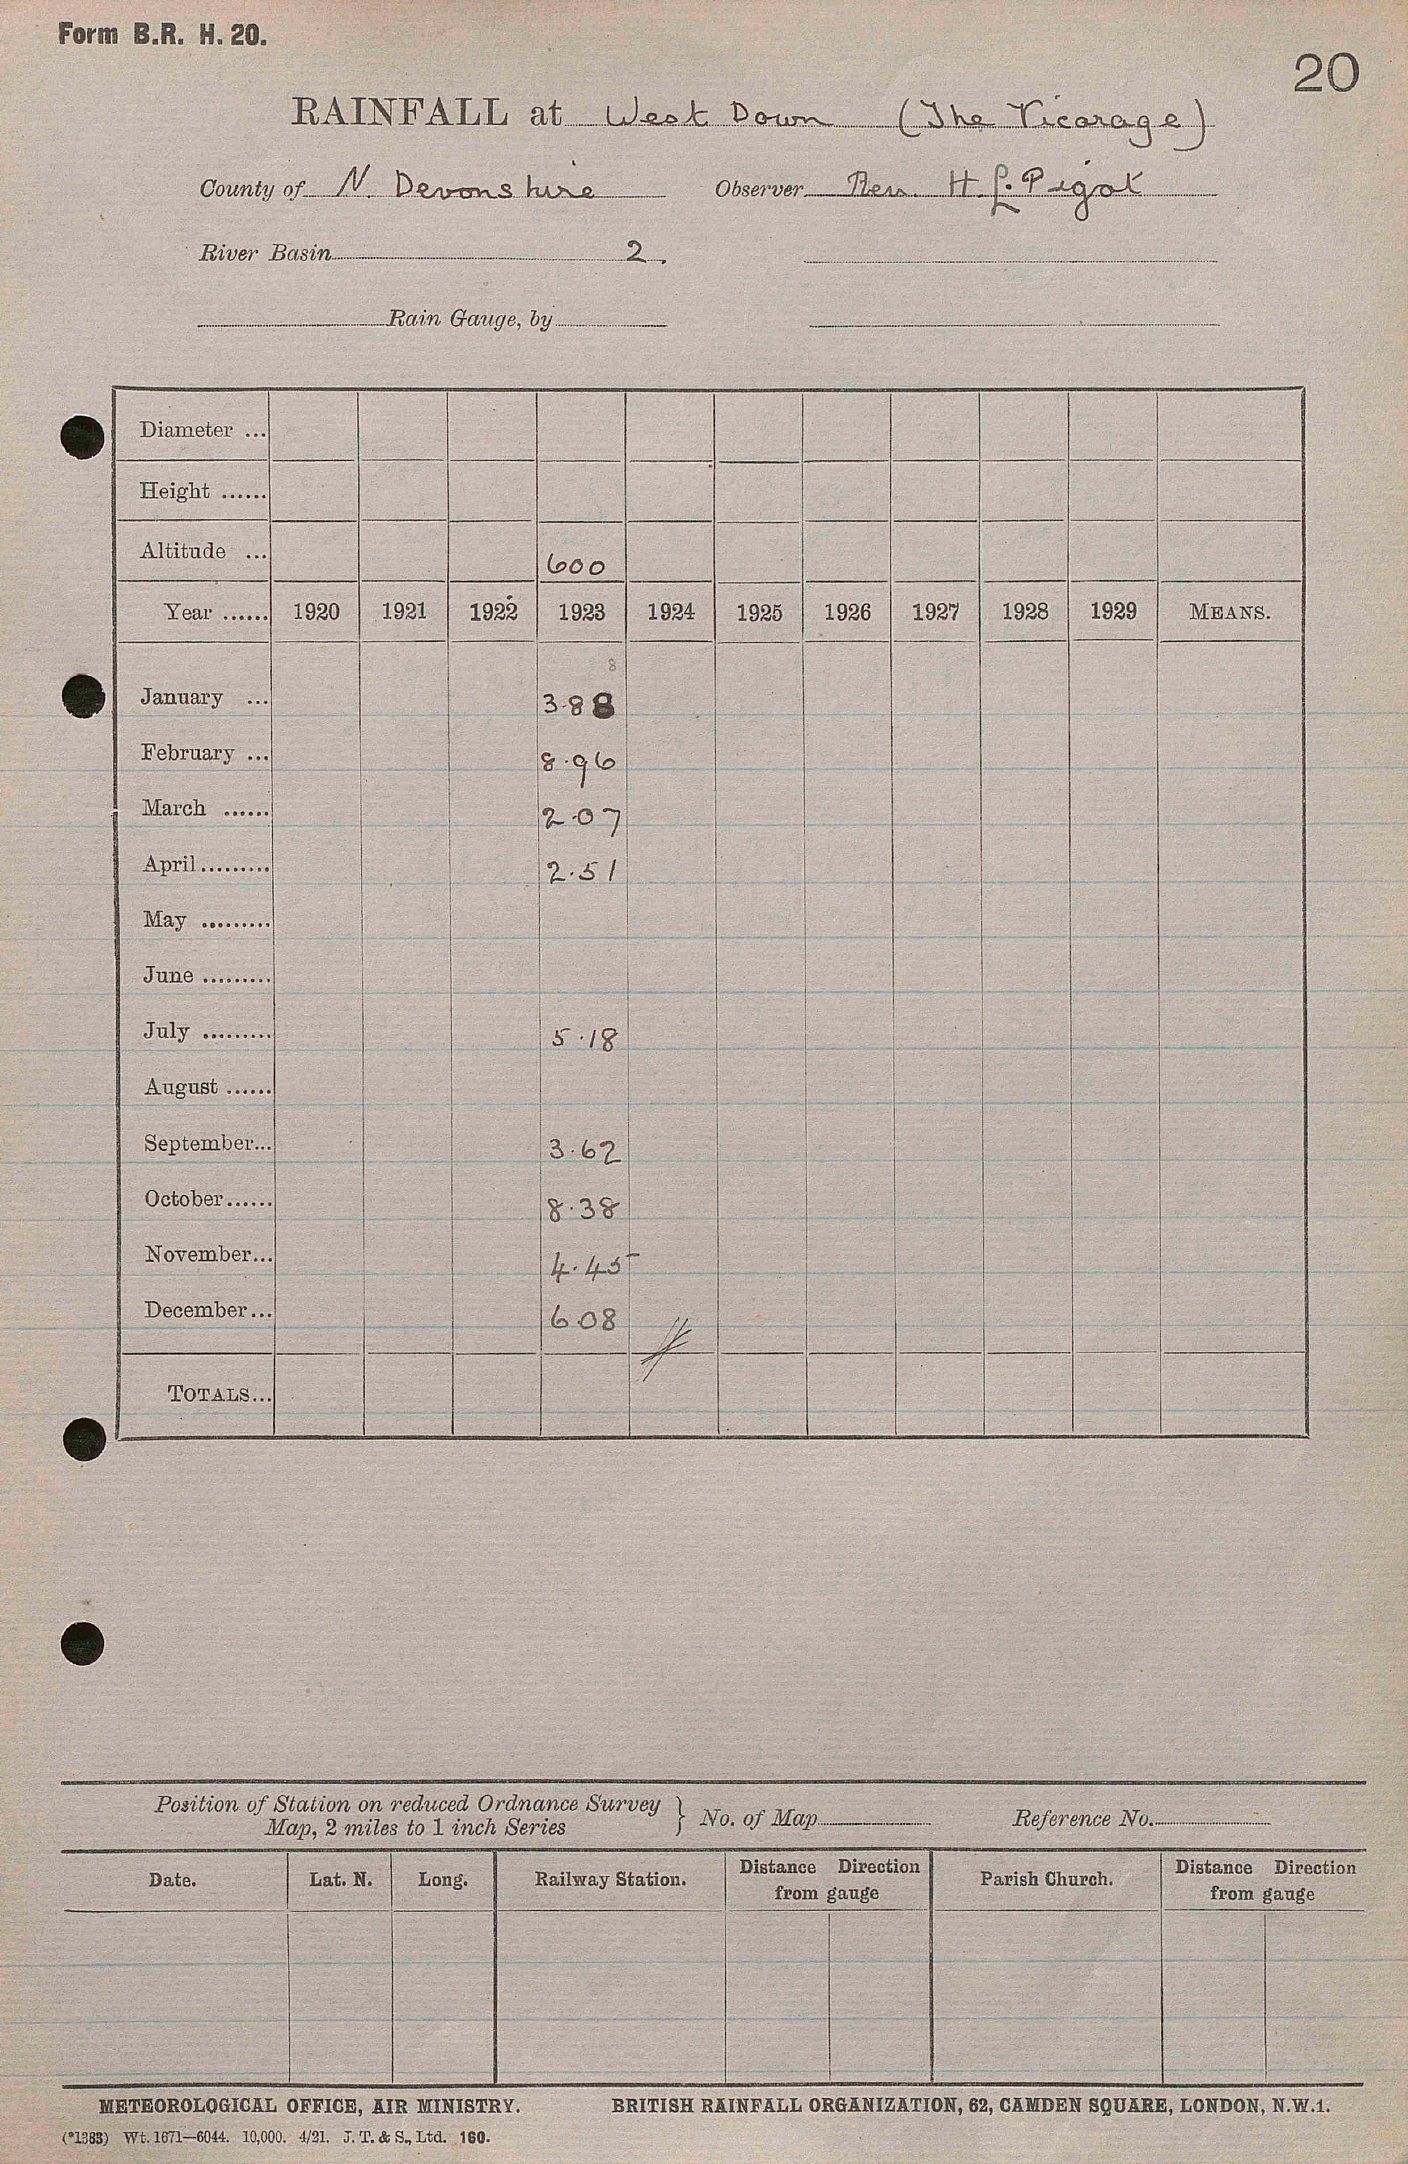 Form B.R. H. 20.
20
RAINFALL at West Down (The Vicarage)
County of N. Devonshire Observer Rev. H. L. Pigot
River Basin 2.
Rain Gauge, by
Diameter ...
Height ......
Altitude ... 600
Year ...... 1920 1921 1922 1923 1924 1925 1926 1927 1928 1929 MEANS.
8
January ... 3.88
February ... 8.96
March ...... 2.07
April......... 2.51
May .........
June .........
July ......... 5.18
August ......
September... 3.62
October...... 8.38
November... 4.45
December... 6.08
TOTALS...
Position of Station on reduced Ordnance Survey
Map, 2 miles to 1 inch Series } No. of Map Reference No.
Date. Lat. N. Long. Railway Station. Distance Direction from gauge Parish Church. Distance Direction from gauge
METEOROLOGICAL OFFICE, AIR MINISTRY. BRITISH RAINFALL ORGANIZATION, 62, CAMDEN SQUARE, LONDON, N.W.1.
(*1383) Wt. 1671—6044. 10,000. 4/21. J. T. & S., Ltd. 160.